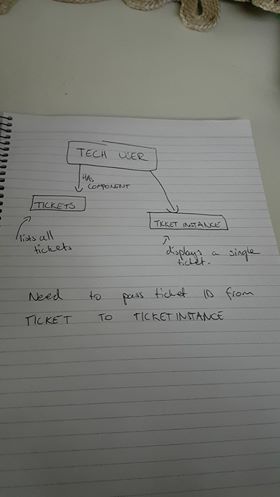 TECH USER
HAS
COMPONENT
TICKETS
TICKET INSTANCE
lists all
tickets
displays a single
ticket.
Need to pass ticket ID from
TICKET TO TICKETINSTANCE